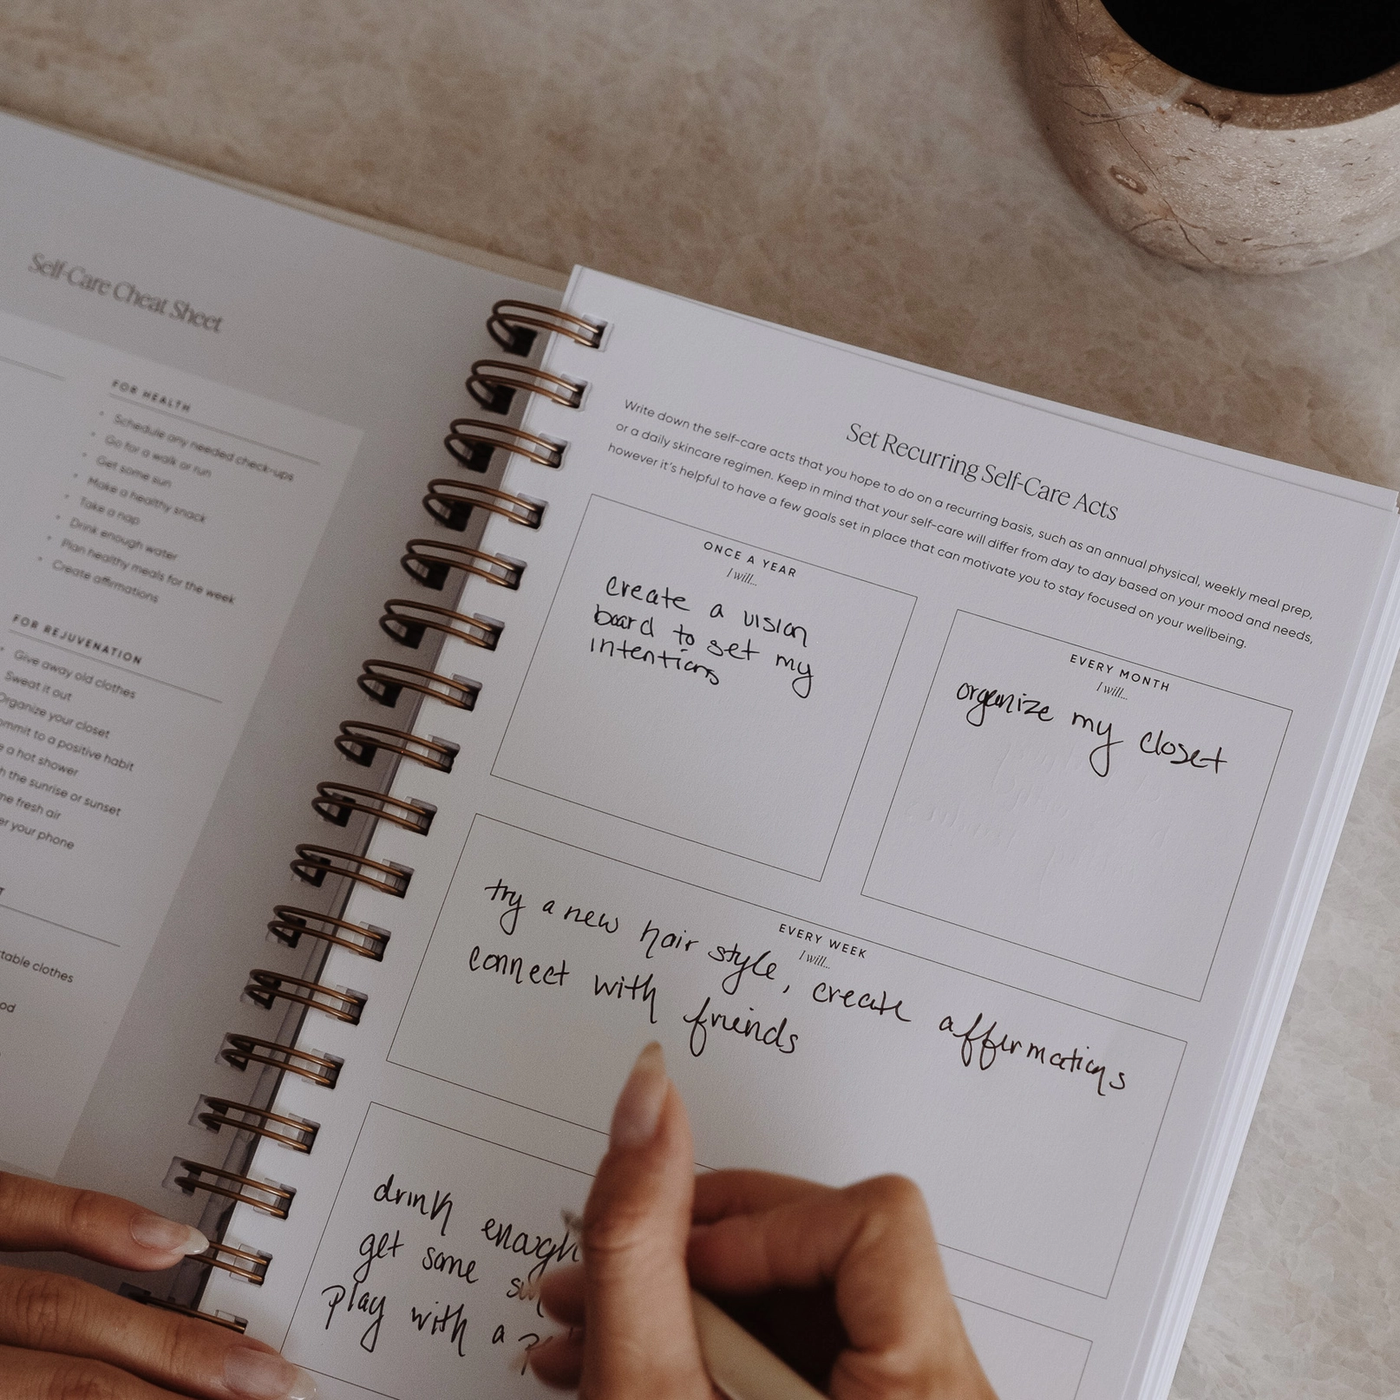 Self-Care Cheat Sheet
FOR HEALTH
Schedule any needed check-ups
Go for a walk or run
Get some sun
Make a healthy snack
Take a nap
Drink enough water
Plan healthy meals for the week
Create affirmations
FOR REJUVENATION
Give away old clothes
Sweat it out
Organize your closet
to a positive habit
a hot shower
the sunrise or sunset
fresh air
your phone
clothes
Set Recurring Self-Care Acts
Write down the self-care acts that you hope to do on a recurring basis, such as an annual physical, weekly meal prep,
or a daily skincare regimen. Keep in mind that your self-care will differ from day to day based on your mood and needs,
however it's helpful to have a few goals set in place that can motivate you to stay focused on your wellbeing.
ONCE A YEAR
I will...
create a vision
board to set my
intentions
EVERY MONTH
I will...
organize my closet
EVERY WEEK
I will...
try a new hair style, create affirmations
connect with friends
drink enough
get some
play with a